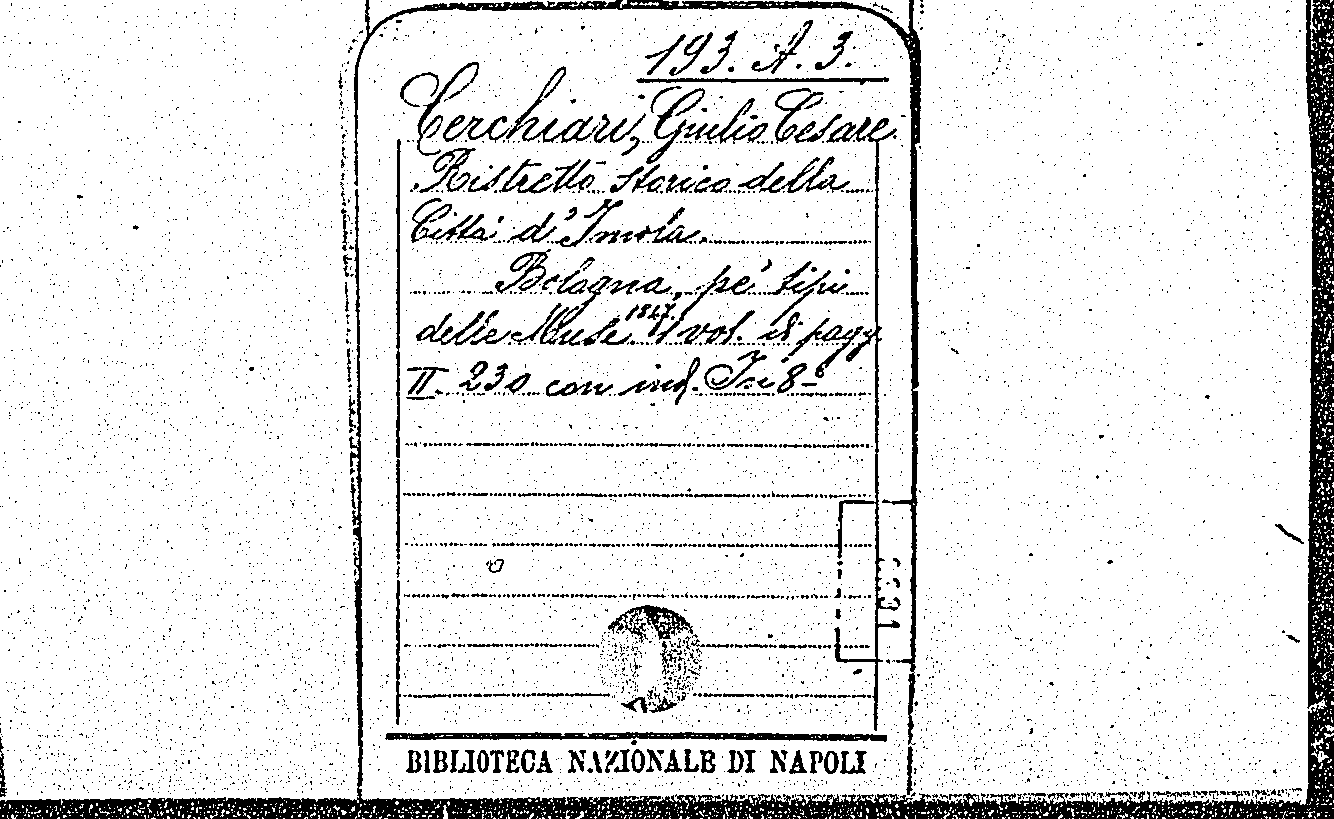 193. A. 3.
Cerchiari, Giulio Cesare.
Ristretto storico della
Città d'Imola.
Bologna, pe' tipi
delle Muse. 1847. 1 vol. di pagg.
II. 230 con ind. In 8º
BIBLIOTECA NAZIONALE DI NAPOLI